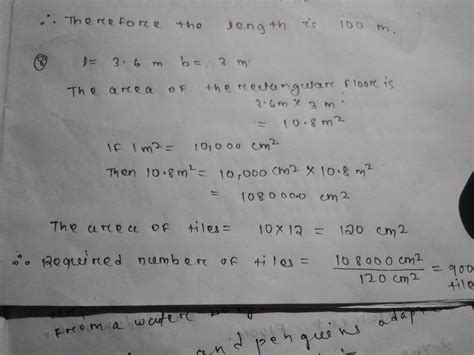 ∴ Therefore the length is 100 m.
⑧ l= 3.6 m b= 3 m
The area of the rectangular floor is
3.6m × 3 m
= 10.8 m2
If 1 m2 = 10,000 cm2
Then 10.8 m2 = 10,000 cm2 × 10.8 m2
= 108000.0 cm2
The area of tiles = 10×12 = 120 cm2
∴ Required number of tiles = 108000 cm2 / 120 cm2 = 900 tiles
from a water
and penguins adap